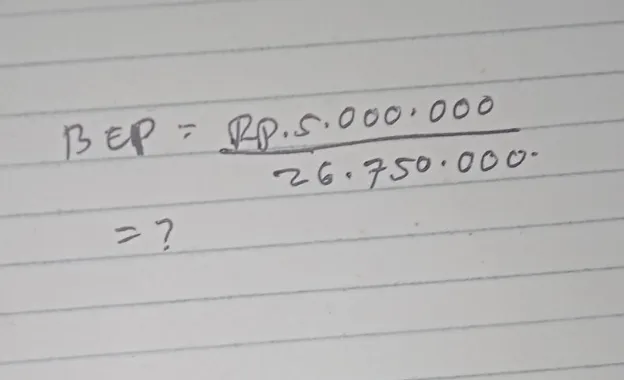 BEP = Rp.5.000.000
26.750.000.
= ?